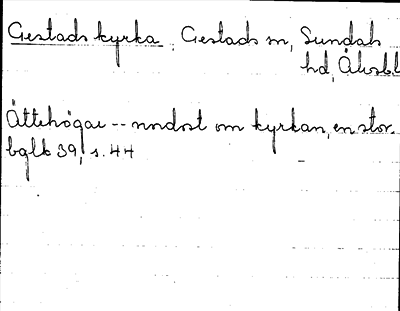 Gestads kyrka, Gestads sn, Sundals
hd, Älvsbl
Ättehögar -- nordost om kyrkan, en stor.
bglb 39, s. 44